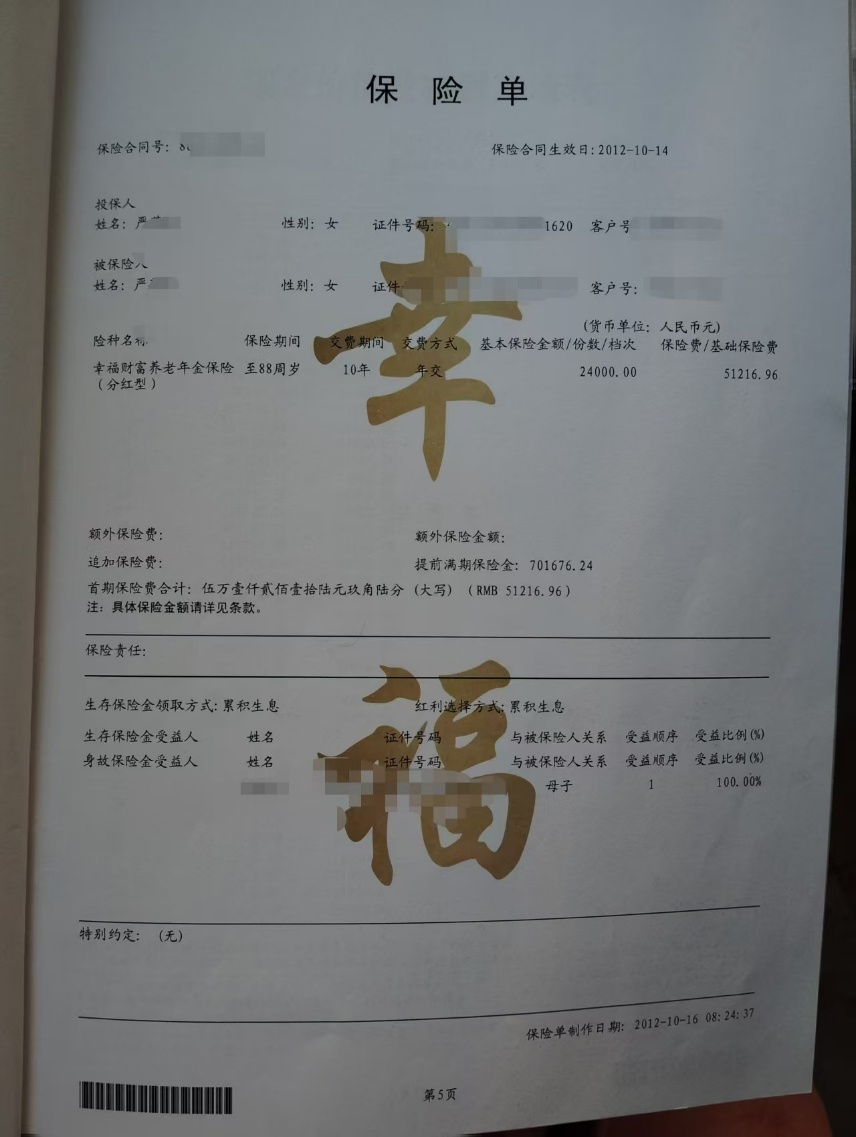 保险单
保险合同号: 保险合同生效日:2012-10-14
投保人
姓名:严 性别: 女 证件号码: 1620 客户号
被保险人
姓名:严 性别: 女 证件 客户号:
(货币单位: 人民币元)
险种名称 保险期间 交费期间 交费方式 基本保险金额/份数/档次 保险费/基础保险费
幸福财富养老年金保险 至88周岁 10年 年交 24000.00 51216.96
(分红型)
额外保险费: 额外保险金额:
追加保险费: 提前满期保险金: 701676.24
首期保险费合计: 伍万壹仟贰佰壹拾陆元玖角陆分 (大写) (RMB 51216.96)
注: 具体保险金额请详见条款。
保险责任:
生存保险金领取方式:累积生息 红利选择方式:累积生息
生存保险金受益人 姓名 证件号码 与被保险人关系 受益顺序 受益比例(%)
身故保险金受益人 姓名 证件号码 与被保险人关系 受益顺序 受益比例(%)
母子 1 100.00%
特别约定: (无)
保险单制作日期: 2012-10-16 08:24:37
第5页
幸
福